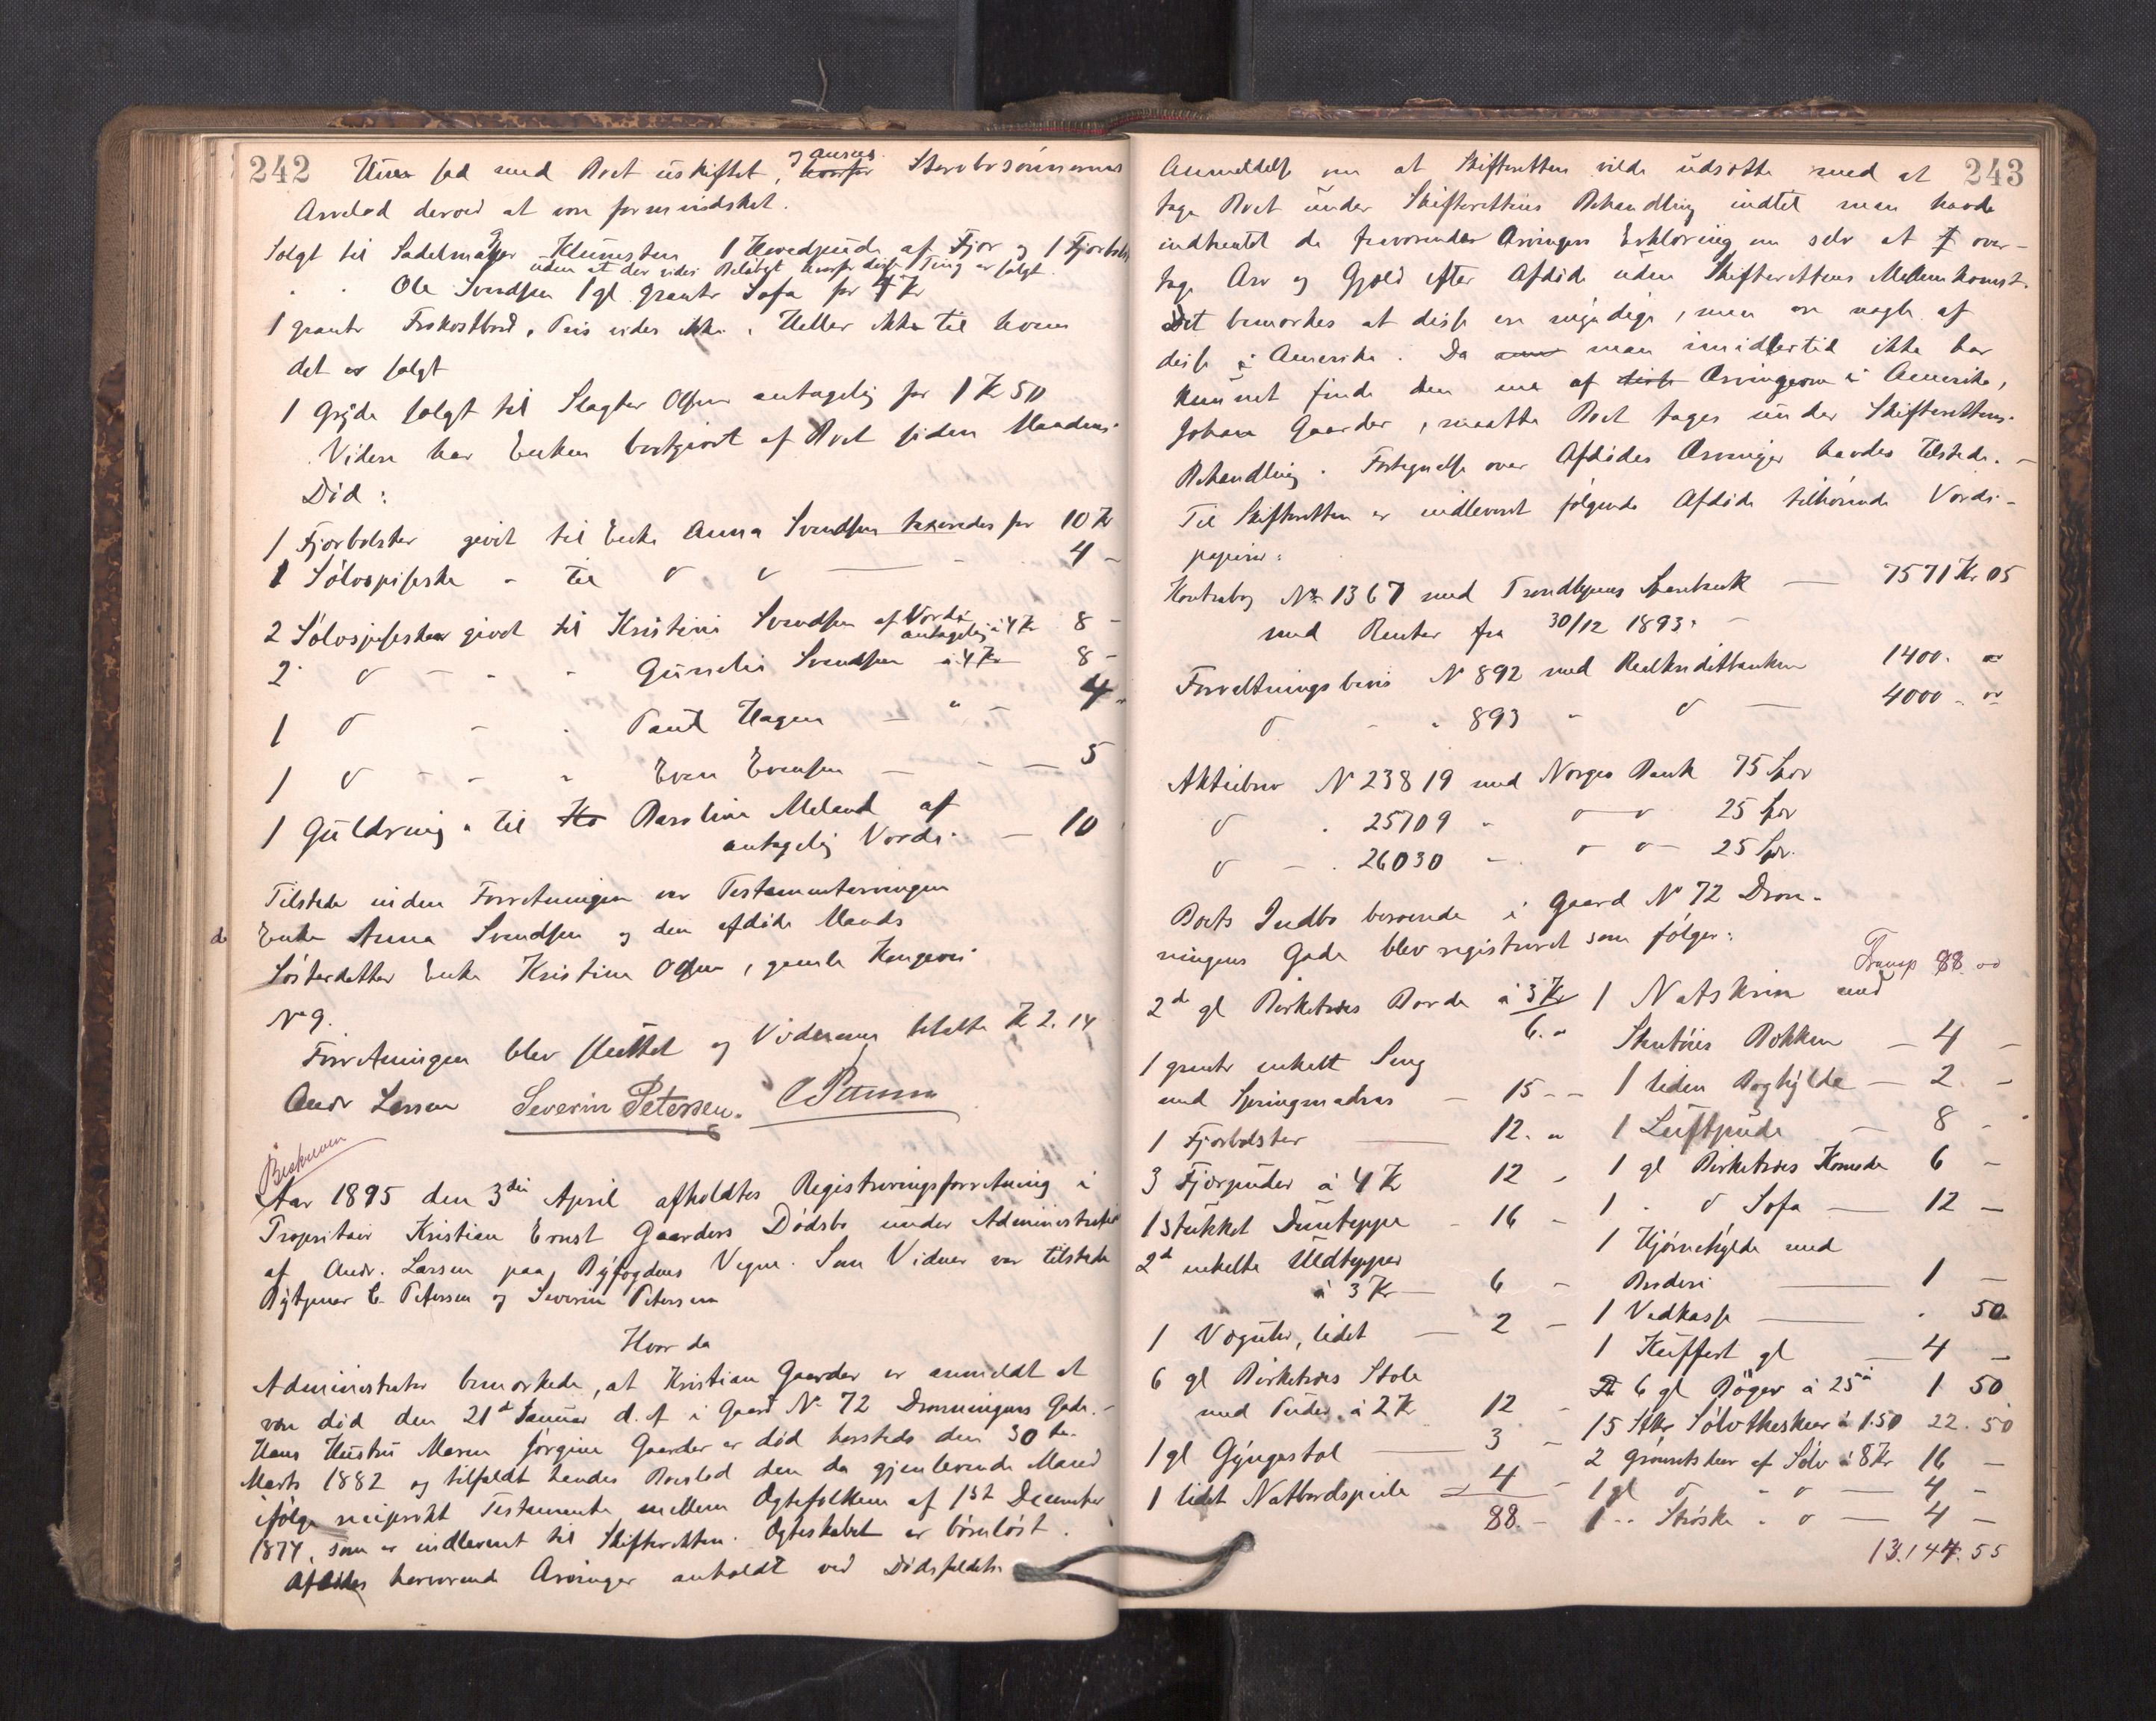 242
Hun sad med Boet uskiftet, og ansees Stervbosønnernes
Arvelod derved at være formindsket.
Solgt til Sadelmager Klemetsen 1 Hovedpude af Fjær og 1 Fjærbolster
uden at der vides Beløbet hvorfor disse Ting er solgt.
" " Ole Svendsen 1 gl. grantr Sofa for 4 Kr
1 grantr Frokostbord, Pris vides ikke, Heller ikke til hvem
det er solgt
1 Gryde solgt til Slagter Olsen antagelig for 1 Kr 50
Videre har Enken bortgivet af Boet siden Mandens
Død:
1 Fjærbolster givet til Enke Anna Svendsen taxeredes for 10 Kr
1 Sølvspiseske - til d d — 4 -
2 Sølvspiseskeer givet til Kristine Svendsen af Værdi antagelig à 4 Kr 8 -
2 d - - - Gunelie Svendsen à 4 Kr 8 -
1 d - - Paul Hagen - " - 4 -
1 d - - - Even Evensen — - — 5
1 Guldring " til Karoline Meland af
antagelig Værdi — 10
Tilstede under Forretningen var Testamentarvingen
Enke Anna Svendsen og den afdøde Mands
Søsterdatter Enke Kristine Olsen, gamle Kongevei
No 9.
Forretningen blev sluttet og Vidnerne betalte Kr 2.14
Andr Larsen Severin Petersen. C Petersen
Beskreven
Aar 1895 den 3die April afholdtes Registreringsforretning i
Propritair Kristian Ernst Gaarders Dødsbo under Administration
af Andr. Larsen paa Byfogdens Vegne. Som Vidner var tilstede
Bytjener C. Petersen og Severin Petersen
Hvor da
Administrator bemærkede, at Kristian Gaarder er anmeldt at
være død den 21de Januar d. A. i Gaard No 72 Dronningens Gade.
Hans Hustru Maren Jørgine Gaarder er død hersteds den 30te
Marts 1882 og tilfaldt hendes Boeslod den da gjenlevende Mand
ifølge reciprokt Testamente mellem Ægtefolkene af 1st December
1874, som er indleveret til Skifteretten. Ægteskabet er børnløst.
Afdødes herværende Arvinger anholdt ved Dødsfaldets
243
Anmeldelse om at Skifteretten vilde udsætte med at
tage Boet under Skifterettens Behandling indtil man havde
indhentet de fraværendes Arvingers Erklæring om selv at over-
tage Arv og Gjæld efter Afdøde uden Skifterettens Mellemkomst.
Det bemærkes at disse ere myndige, men ere nogle af
disse i Amerika. Da man imidlertid ikke har
kunnet finde den ene af Arvingerne i Amerika,
Johan Gaarder, maatte Boet tages under Skifterettens
Behandling. Fortegnelse over Afdødes Arvinger havdes tilstede. —
Til Skifteretten er indleveret følgende Afdøde tilhørende Værdi-
papirer:
Kontrabog No 1367 med Trondhjems Sparebank — 7571 Kr 05
med Renter fra 30/12 1893. —
Forvaltningsbevis N 892 med Realkreditbanken 1400. 00
d - " 893 - d — 4000 - 00
Aktiebrev N 23819 med Norges Bank 75 Spd
d . 25709 - d d 25 Spd
d - . 26030 - d d - 25 Spd.
Boets Indbo beroende i Gaard No 72 Dron-
ningens Gade blev registreret som følger:
Transp 88. 00
2de gl Birketræes Borde à 3 Kr 6. "
1 grantr enkelt Seng
med Springmadras — 15 - -
1 Fjærbolster — 12. "
3 Fjærpuder à 4 Kr 12 -
1 Stukket Duntæppe - 16 -
2de enkelte Uldtæpper
à 3 Kr — 6 -
1 Væguhr, lidet — 2 -
6 gl Birketræes Stole
med Puder à 2 Kr 12 -
1 gl Gyngestol — 3 -
1 lidet Natbordspeile — 4 -
88. -
1 Natskrin med
Stentøies Bækken — 4 -
1 liden Boghylde — 2 -
1 Luftpude — 8 -
1 gl Birketræes Komode 6 -
1 - d Sofa — 12 —
1 Hjørnehylde med
Broderi — 1 —
1 Vedkasse — . 50
1 Kuffert gl — 4 —
6 gl Bøger à 25 ø 1 50
15 Stkr Sølvtheskeer à 1.50 22. 50
2 Grønsskeer af Sølv à 8 Kr 16 —
1 gl d - d — 4 -
1 - - Strøske - d — 4 —
13.144. 55